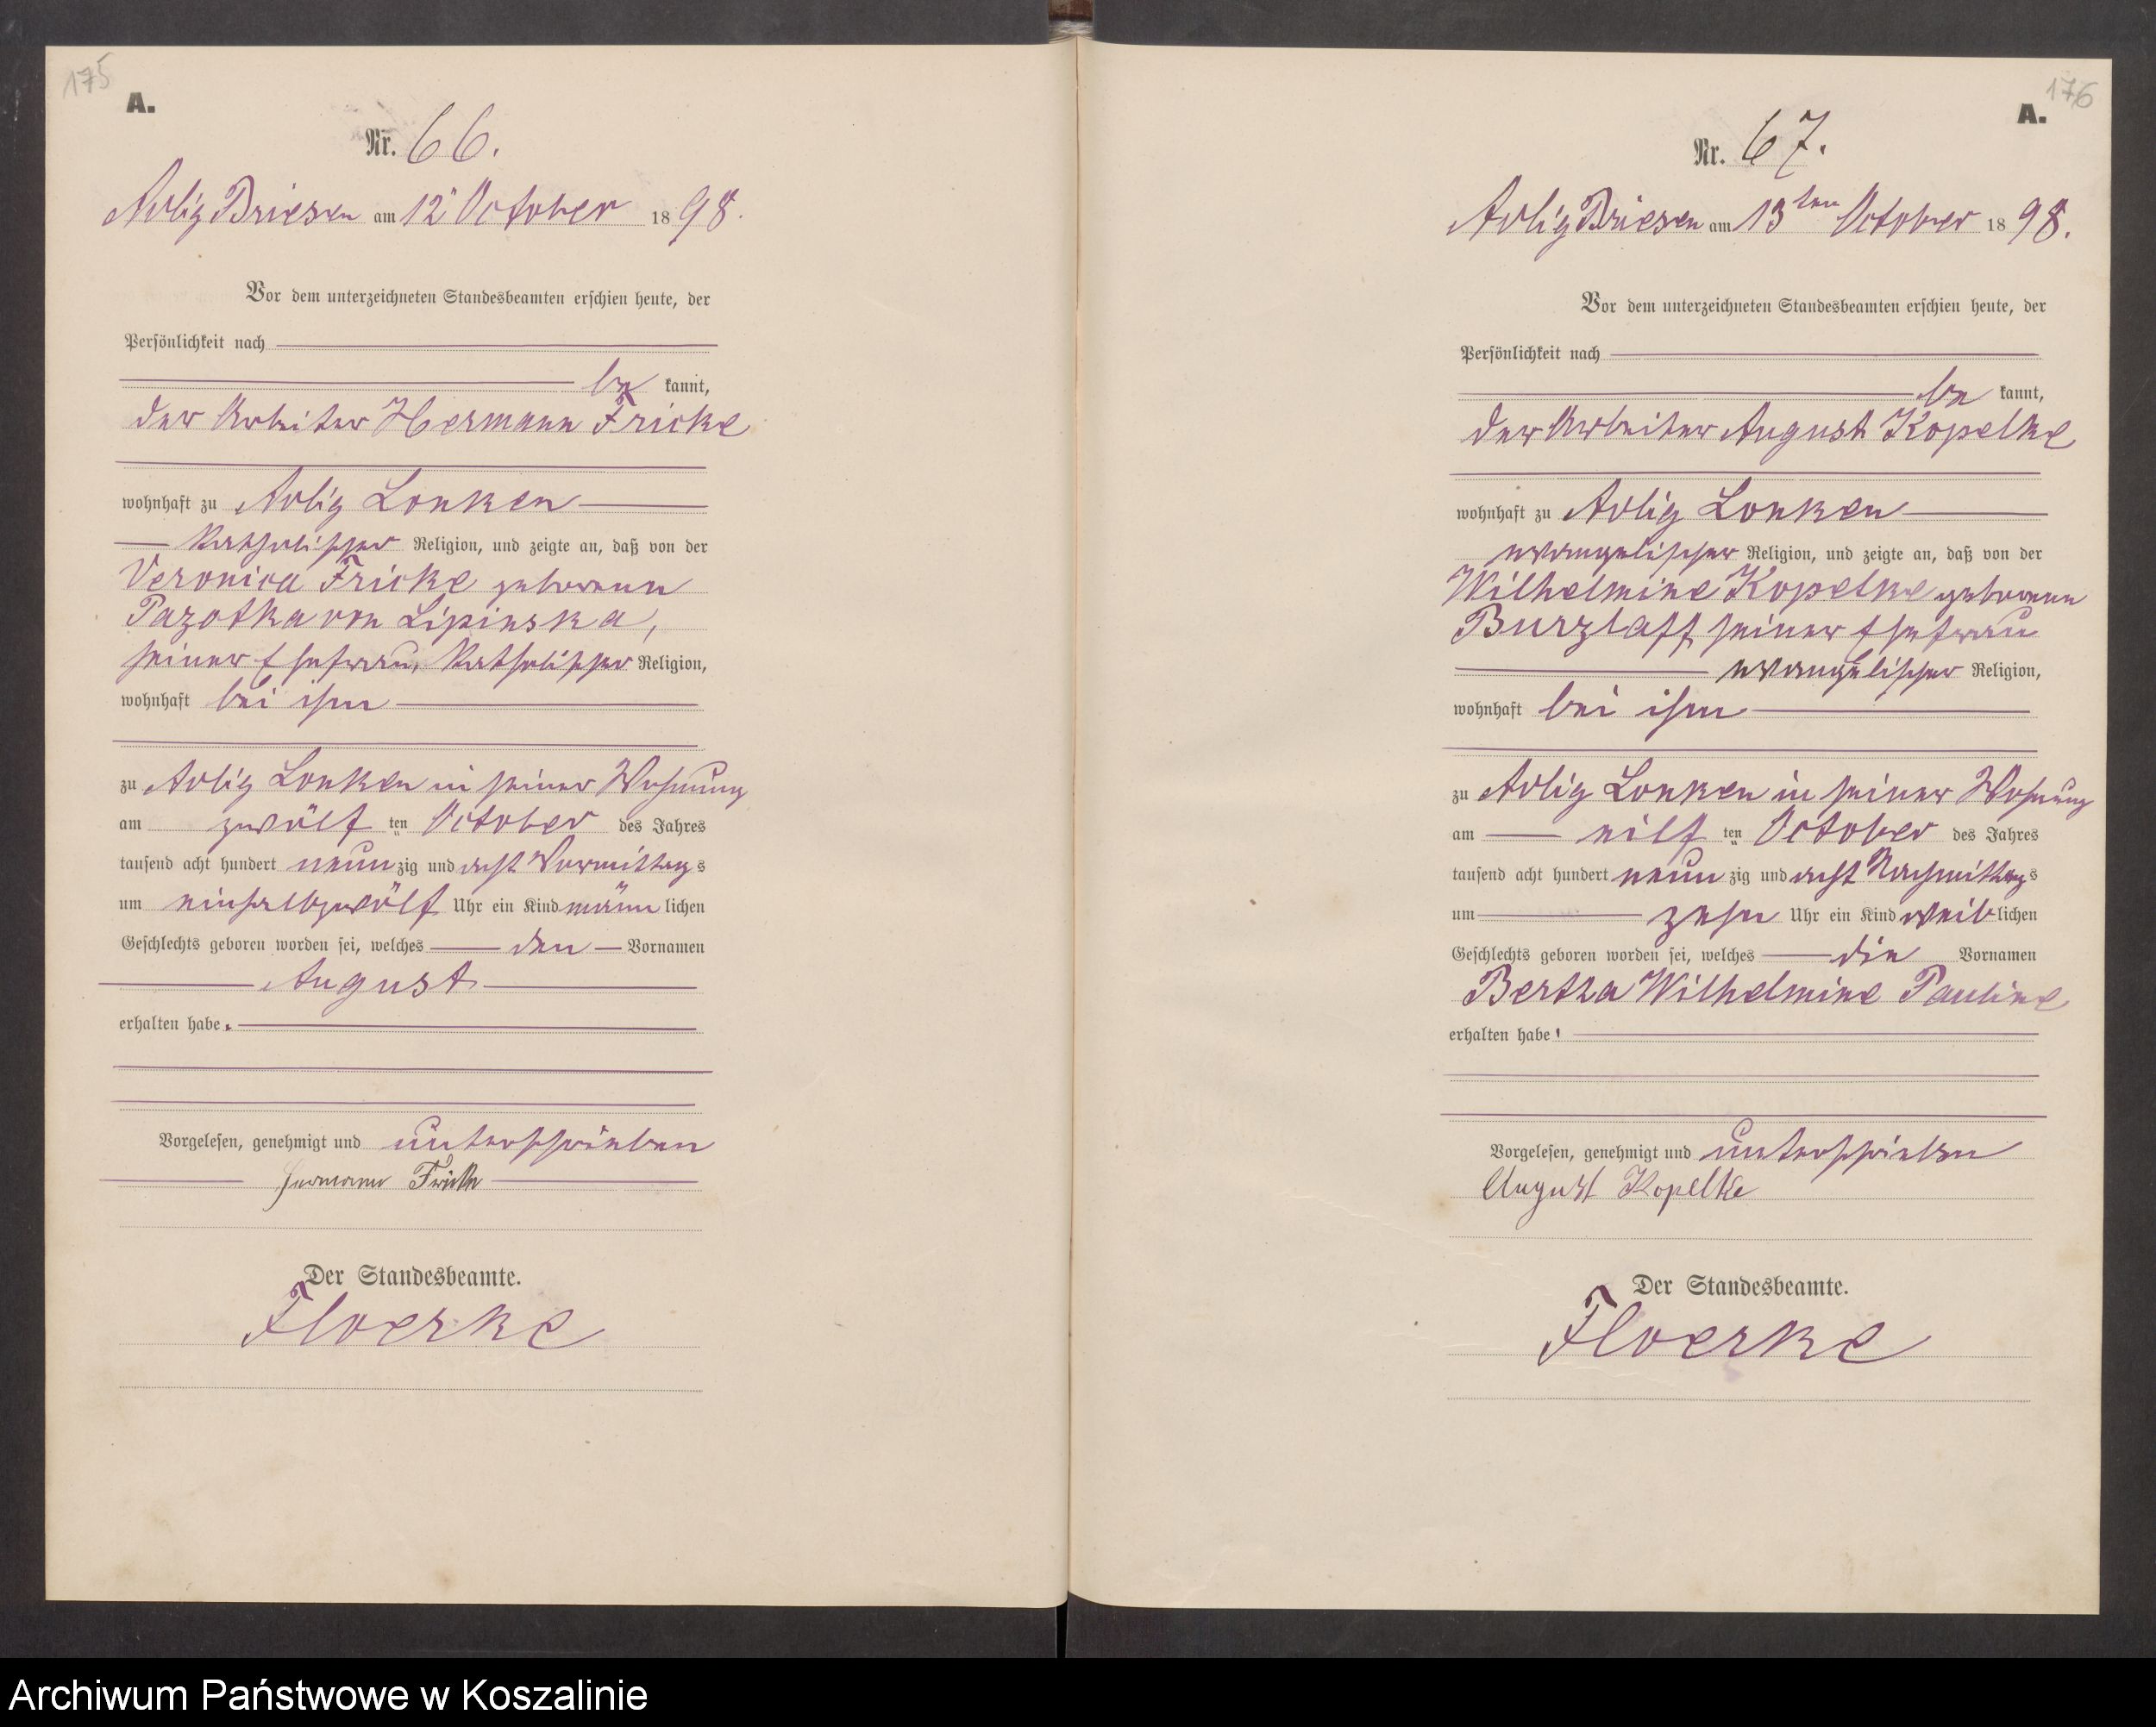 175
A.
Nr. 66.
Adlig Briesen am 12 October 1898.
Vor dem unterzeichneten Standesbeamten erschien heute, der
Persönlichkeit nach
be kannt,
der Arbeiter Hermann Fricke
wohnhaft zu Adlig Lonken
katholischer Religion, und zeigte an, daß von der
Veronica Fricke geborenen
Pazotka von Lipinska,
seiner Ehefrau, katholischer Religion,
wohnhaft bei ihm
zu Adlig Lonken in seiner Wohnung
am zwölf ten October des Jahres
tausend acht hundert neun zig und acht Vormittag s
um einhalbzwölf Uhr ein Kind männ lichen
Geschlechts geboren worden sei, welches den Vornamen
August
erhalten habe.
Vorgelesen, genehmigt und unterschrieben
Hermann Fricke
Der Standesbeamte.
Floerke
176
A.
Nr. 67.
Adlig Briesen am 13ten October 1898.
Vor dem unterzeichneten Standesbeamten erschien heute, der
Persönlichkeit nach
be kannt,
der Arbeiter August Kopelke
wohnhaft zu Adlig Lonken
evangelischer Religion, und zeigte an, daß von der
Wilhelmine Kopelke geborenen
Burzlaff seiner Ehefrau
evangelischer Religion,
wohnhaft bei ihm
zu Adlig Lonken in seiner Wohnung
am eilf ten October des Jahres
tausend acht hundert neun zig und acht Nachmittag s
um zehn Uhr ein Kind weib lichen
Geschlechts geboren worden sei, welches die Vornamen
Bertha Wilhelmine Pauline
erhalten habe.
Vorgelesen, genehmigt und unterschrieben
August Kopelke
Der Standesbeamte.
Floerke
Archiwum Państwowe w Koszalinie